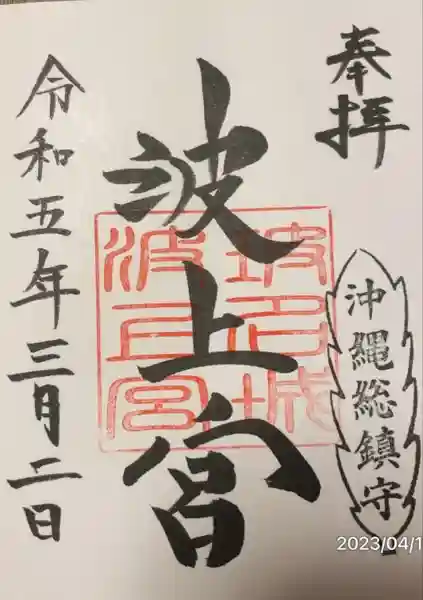 奉拝
沖縄総鎮守
波上宮
令和五年三月二日
波上宮
2023/04/1